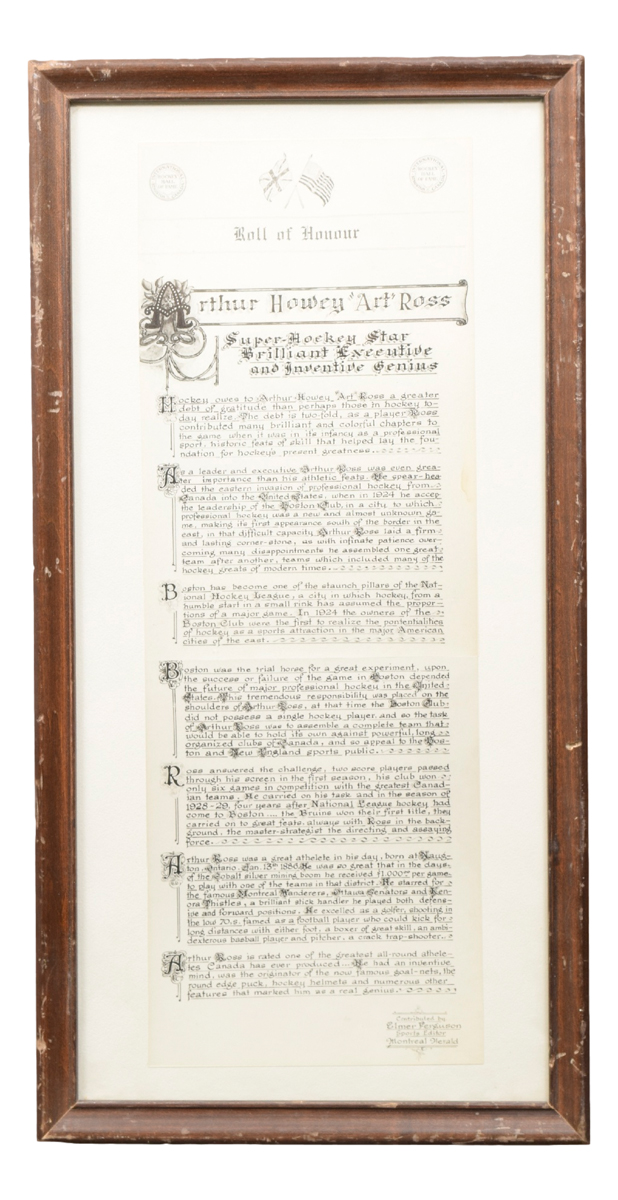 HOCKEY HALL OF FAME
HOCKEY HALL OF FAME
Roll of Honour
Arthur Howey "Art" Ross
Super-Hockey Star
Brilliant Executive
and Inventive Genius
Hockey owes to Arthur Howey "Art" Ross a greater
debt of gratitude than perhaps those in hockey to-
day realize. The debt is two-fold, as a player Ross
contributed many brilliant and colorful chapters to
the game when it was in its infancy as a professional
sport, historic feats of skill that helped lay the fou-
ndation for hockey's present greatness.
As a leader and executive Arthur Ross was even grea-
ter importance than his athletic feats. He spear-hea-
ded the eastern invasion of professional hockey from
Canada into the United States, when in 1924 he accep
the leadership of the Boston Club, in a city to which
professional hockey was a new and almost unknown ga-
me, making its first appearance south of the border in the
east, in that difficult capacity Arthur Ross laid a firm
and lasting corner-stone, as with infinate patience over-
coming many disappointments he assembled one great
team after another, teams which included many of the
hockey greats of modern times.
Boston has become one of the staunch pillars of the Nat-
ional Hockey League, a city in which hockey, from a
humble start in a small rink has assumed the propor-
tions of a major game. In 1924 the owners of the
Boston Club were the first to realize the
of hockey as a sports attraction in the major American
cities of the east.
Boston was the trial horse for a great experiment, upon
the success or failure of the game in Boston depended
the future of major professional hockey in the United
States. This tremendous responsibility was placed on the
shoulders of Arthur Ross, at that time the Boston Club
did not possess a single hockey player, and so the task
of Arthur Ross was to assemble a complete team that
would be able to hold its own against powerful, long
organized clubs of Canada, and so appeal to the Bos-
ton and New England sports public.
Ross answered the challenge, two score players passed
through his screen in the first season, his club won
only six games in competition with the greatest Canad-
ian teams. He carried on his task and in the season of
1928-29, four years after National League hockey had
come to Boston .... the Bruins won their first title, they
carried on to great feats, always with Ross in the back-
ground, the master-strategist the directing and assaying
force.
Arthur Ross was a great athelete in his day, born at Naug-
ton, Ontario, Jan. 13th 1886. He was so great that in the days
of the Cobalt silver mining boom he received $1,000.00 per game
to play with one of the teams in that district. He starred for
the famous Montreal Wanderers, Ottawa Senators and Ken-
ora Thistles, a brilliant stick handler he played both defens-
ive and forward positions. He excelled as a golfer, shooting in
the low 70,s, famed as a football player who could kick for
long distances with either foot, a boxer of great skill, an ambi-
dexterous basball player and pitcher, a crack trap-shooter.
Arthur Ross is rated one of the greatest all-round athele-
tes Canada has ever produced... He had an inventive
mind, was the originator of the now famous goal-nets, the
round edge puck, hockey helmets and numerous other
features that marked him as a real genius.
Contributed by
Elmer Ferguson
Sports Editor
Montreal Herald